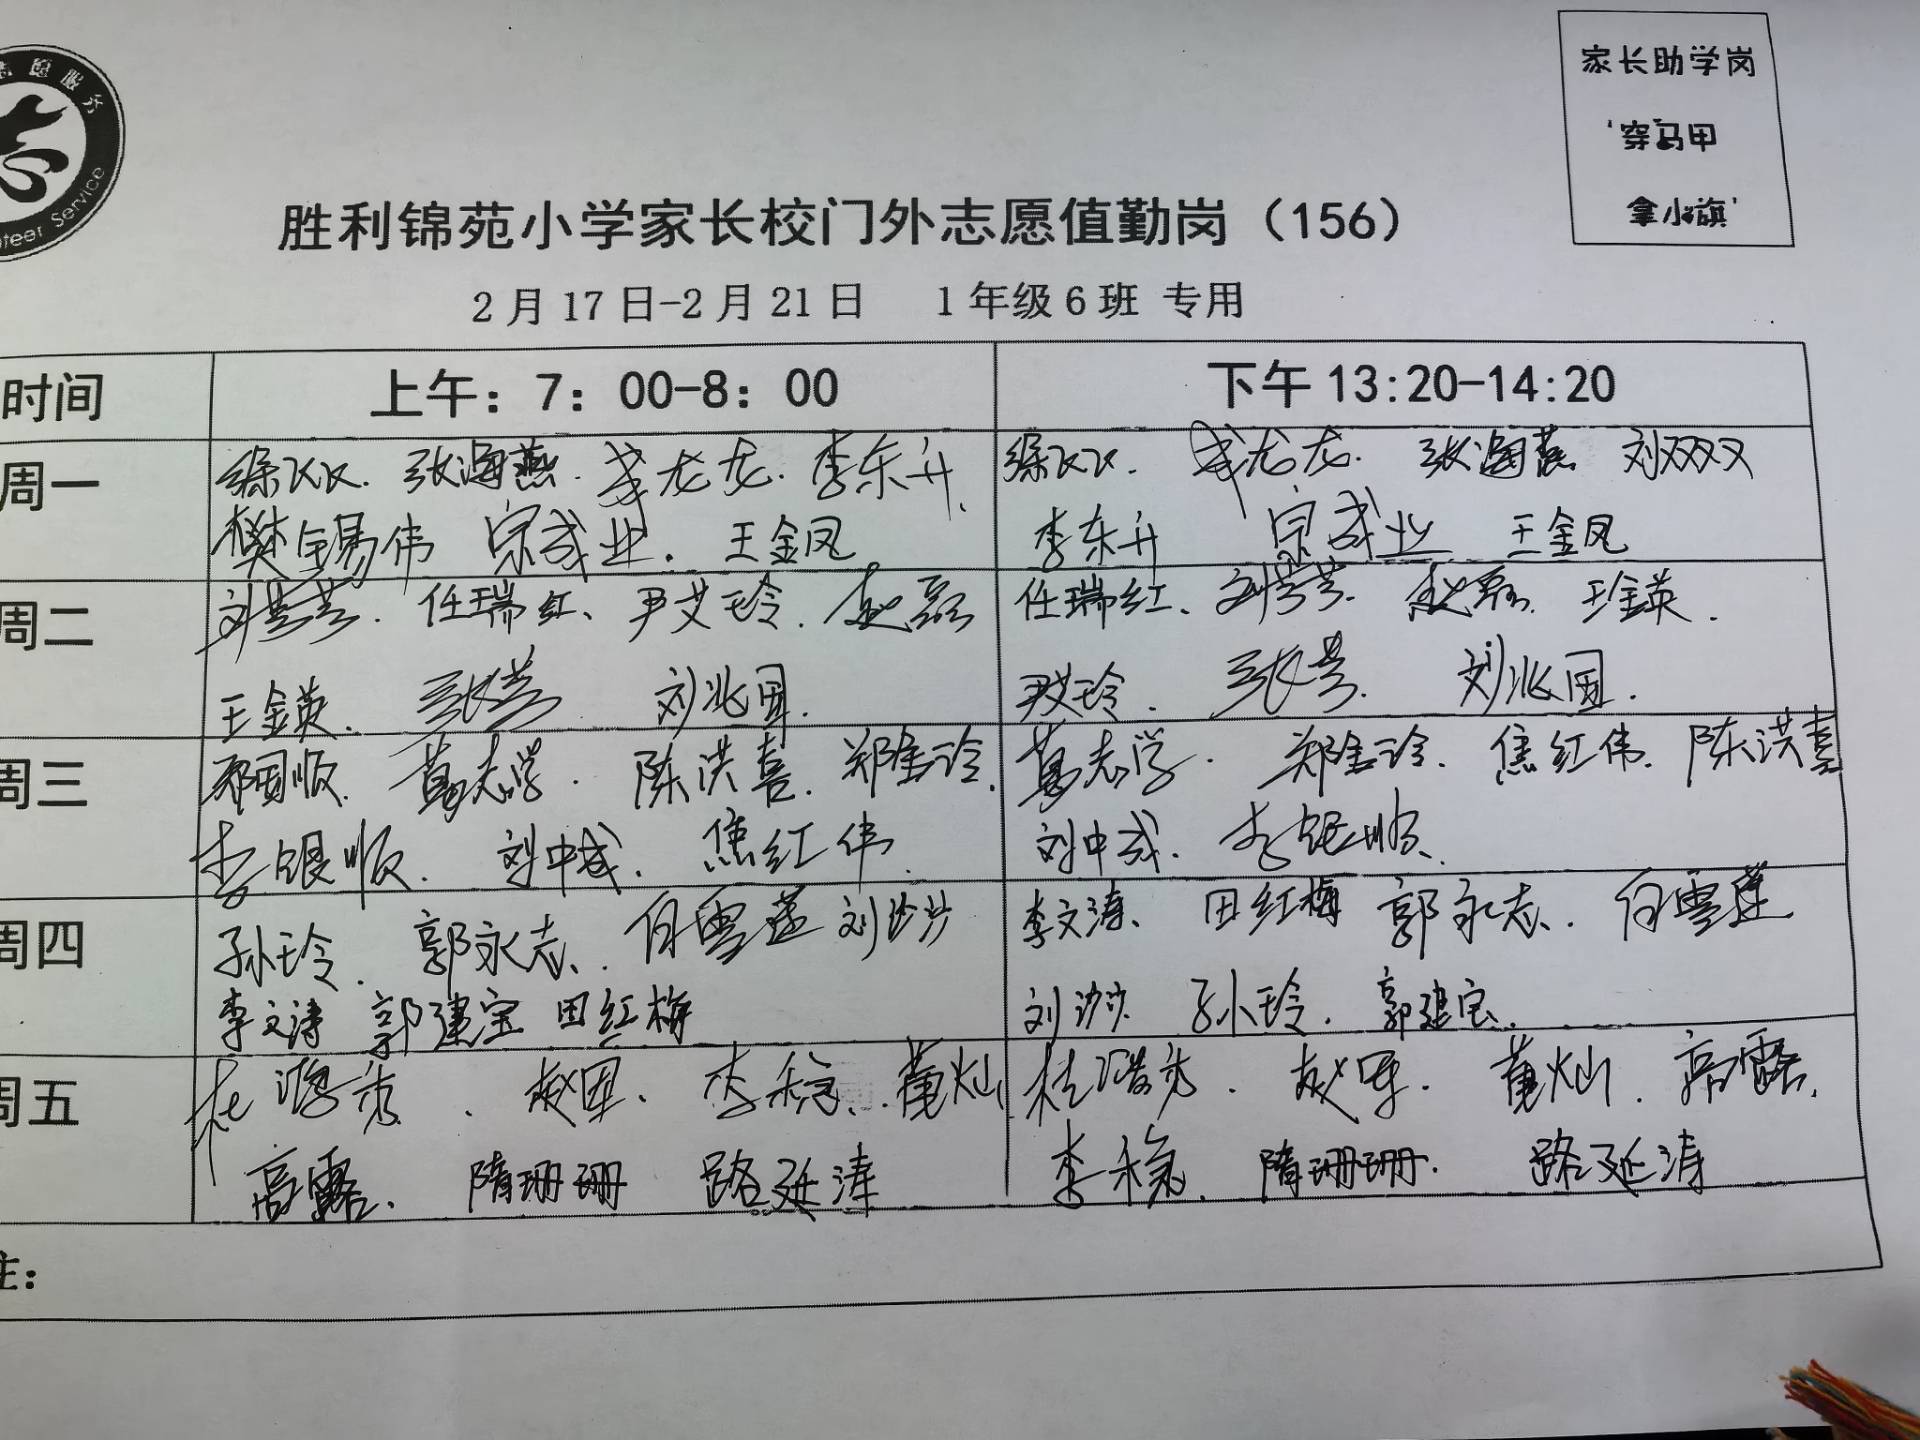 志愿服务
teer Service
家长助学岗
'穿马甲
拿小旗'
胜利锦苑小学家长校门外志愿值勤岗（156）
2月17日-2月21日 1年级6班 专用
时间 上午：7：00-8：00 下午13:20-14:20
周一 徐双双. 张海燕. 龙龙. 李东升. 徐双双. 龙龙. 张海燕 刘双双
樊锡伟 宗成业. 王金凤 李东升 宗成业 王金凤
周二 刘芳芳. 任瑞红、尹艾玲. 赵磊 任瑞红、刘芳芳. 赵磊. 王金英.
王金英. 张芳 刘兆国. 尹艾玲. 张芳. 刘兆国.
周三 国顺. 葛志学. 陈洪喜. 郑金玲. 葛志学. 郑金玲. 焦红伟. 陈洪喜
李银顺. 刘中成. 焦红伟 刘中成. 李银顺.
周四 孙玲. 郭永志. 白雪莲 刘沙沙 李文涛、田红梅 郭永志. 白雪莲
李文涛 郭建宝 田红梅 刘沙沙 孙玲. 郭建宝.
周五 杜 秀. 赵军. 李稳. 董灿 杜 秀. 赵军. 董灿. 高露.
高露. 隋珊珊 路延涛 李稳. 隋珊珊. 路延涛
注：